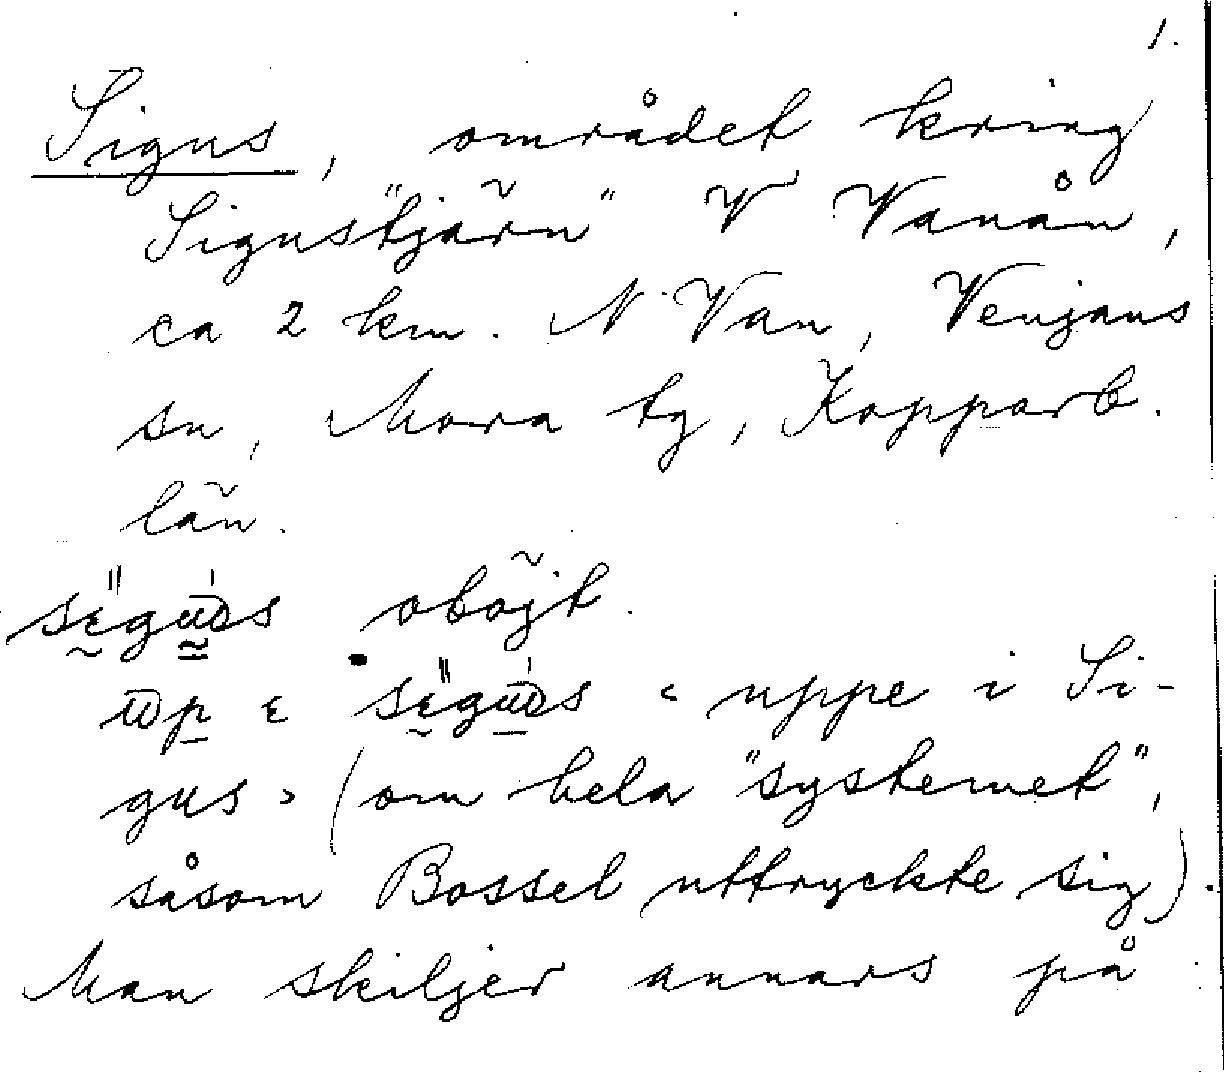 1.
Sigus, området kring
Sigus"tjärn" V Vanån,
ca 2 km. N Van, Venjans
sn, Mora tg, Kopparb.
län.
oböjt.
‹uppe i Si-
gus› (om hela "systemet",
såsom Bossel uttryckte sig).
Man skiljer annars på